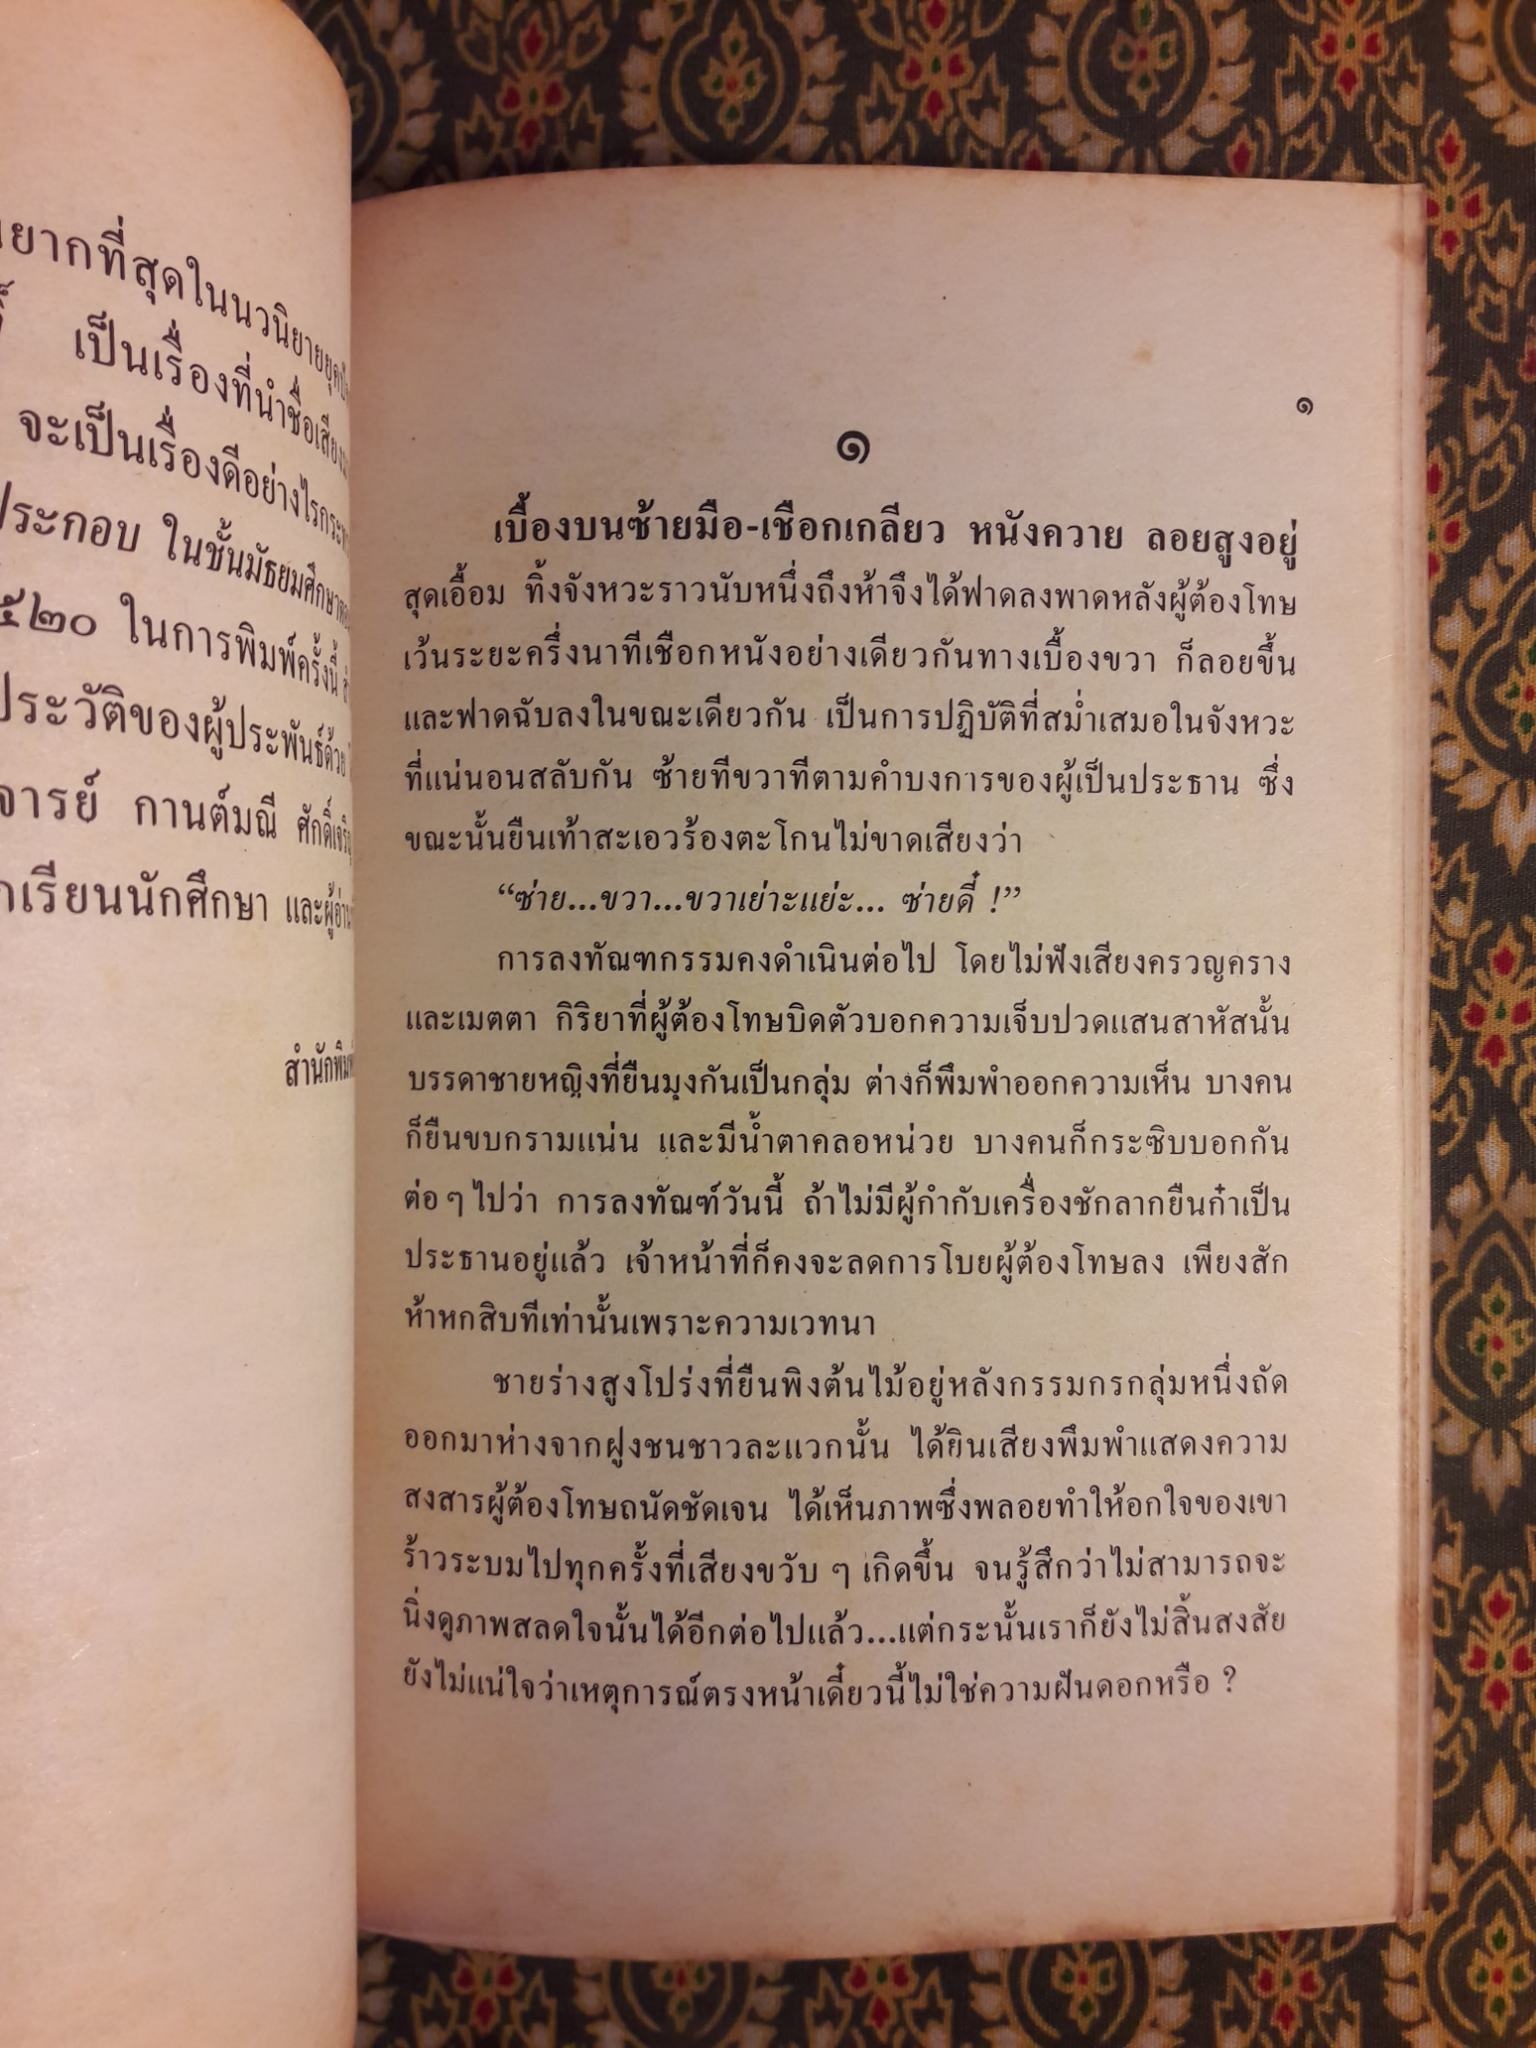 ยากที่สุดในนวนิยาย
เป็นเรื่องที่นำชื่อเสียง
จะเป็นเรื่องดีอย่างไร
ประกอบ ในชั้นมัธยมศึกษา
๕๒๐ ในการพิมพ์ครั้งนี้
ประวัติของผู้ประพันธ์ด้วย
จารย์ กานต์มณี
กเรียนนักศึกษา และผู้อ่าน
สำนักพิมพ์
๑
๑
เบื้องบนซ้ายมือ-เชือกเกลียว หนังควาย ลอยสูงอยู่
สุดเอื้อม ทิ้งจังหวะราวนับหนึ่งถึงห้าจึงได้ฟาดลงพาดหลังผู้ต้องโทษ
เว้นระยะครึ่งนาทีเชือกหนังอย่างเดียวกันทางเบื้องขวา ก็ลอยขึ้น
และฟาดฉับลงในขณะเดียวกัน เป็นการปฏิบัติที่สม่ำเสมอในจังหวะ
ที่แน่นอนสลับกัน ซ้ายทีขวาทีตามคำบงการของผู้เป็นประธาน ซึ่ง
ขณะนั้นยืนเท้าสะเอวร้องตะโกนไม่ขาดเสียงว่า
“ซ่าย...ขวา...ขวาเย่าะแย่ะ... ซ่ายดี่ !”
การลงทัณฑกรรมคงดำเนินต่อไป โดยไม่ฟังเสียงครวญคราง
และเมตตา กิริยาที่ผู้ต้องโทษบิดตัวบอกความเจ็บปวดแสนสาหัสนั้น
บรรดาชายหญิงที่ยืนมุงกันเป็นกลุ่ม ต่างก็พึมพำออกความเห็น บางคน
ก็ยืนขบกรามแน่น และมีน้ำตาคลอหน่วย บางคนก็กระซิบบอกกัน
ต่อๆ ไปว่า การลงทัณฑ์วันนี้ ถ้าไม่มีผู้กำกับเครื่องชักลากยืนก๋าเป็น
ประธานอยู่แล้ว เจ้าหน้าที่ก็คงจะลดการโบยผู้ต้องโทษลง เพียงสัก
ห้าหกสิบทีเท่านั้นเพราะความเวทนา
ชายร่างสูงโปร่งที่ยืนพิงต้นไม้อยู่หลังกรรมกรกลุ่มหนึ่งถัด
ออกมาห่างจากฝูงชนชาวละแวกนั้น ได้ยินเสียงพึมพำแสดงความ
สงสารผู้ต้องโทษถนัดชัดเจน ได้เห็นภาพซึ่งพลอยทำให้อกใจของเขา
ร้าวระบมไปทุกครั้งที่เสียงขวับ ๆ เกิดขึ้น จนรู้สึกว่าไม่สามารถจะ
นิ่งดูภาพสลดใจนั้นได้อีกต่อไปแล้ว...แต่กระนั้นเราก็ยังไม่สิ้นสงสัย
ยังไม่แน่ใจว่าเหตุการณ์ตรงหน้าเดี๋ยวนี้ไม่ใช่ความฝันดอกหรือ ?